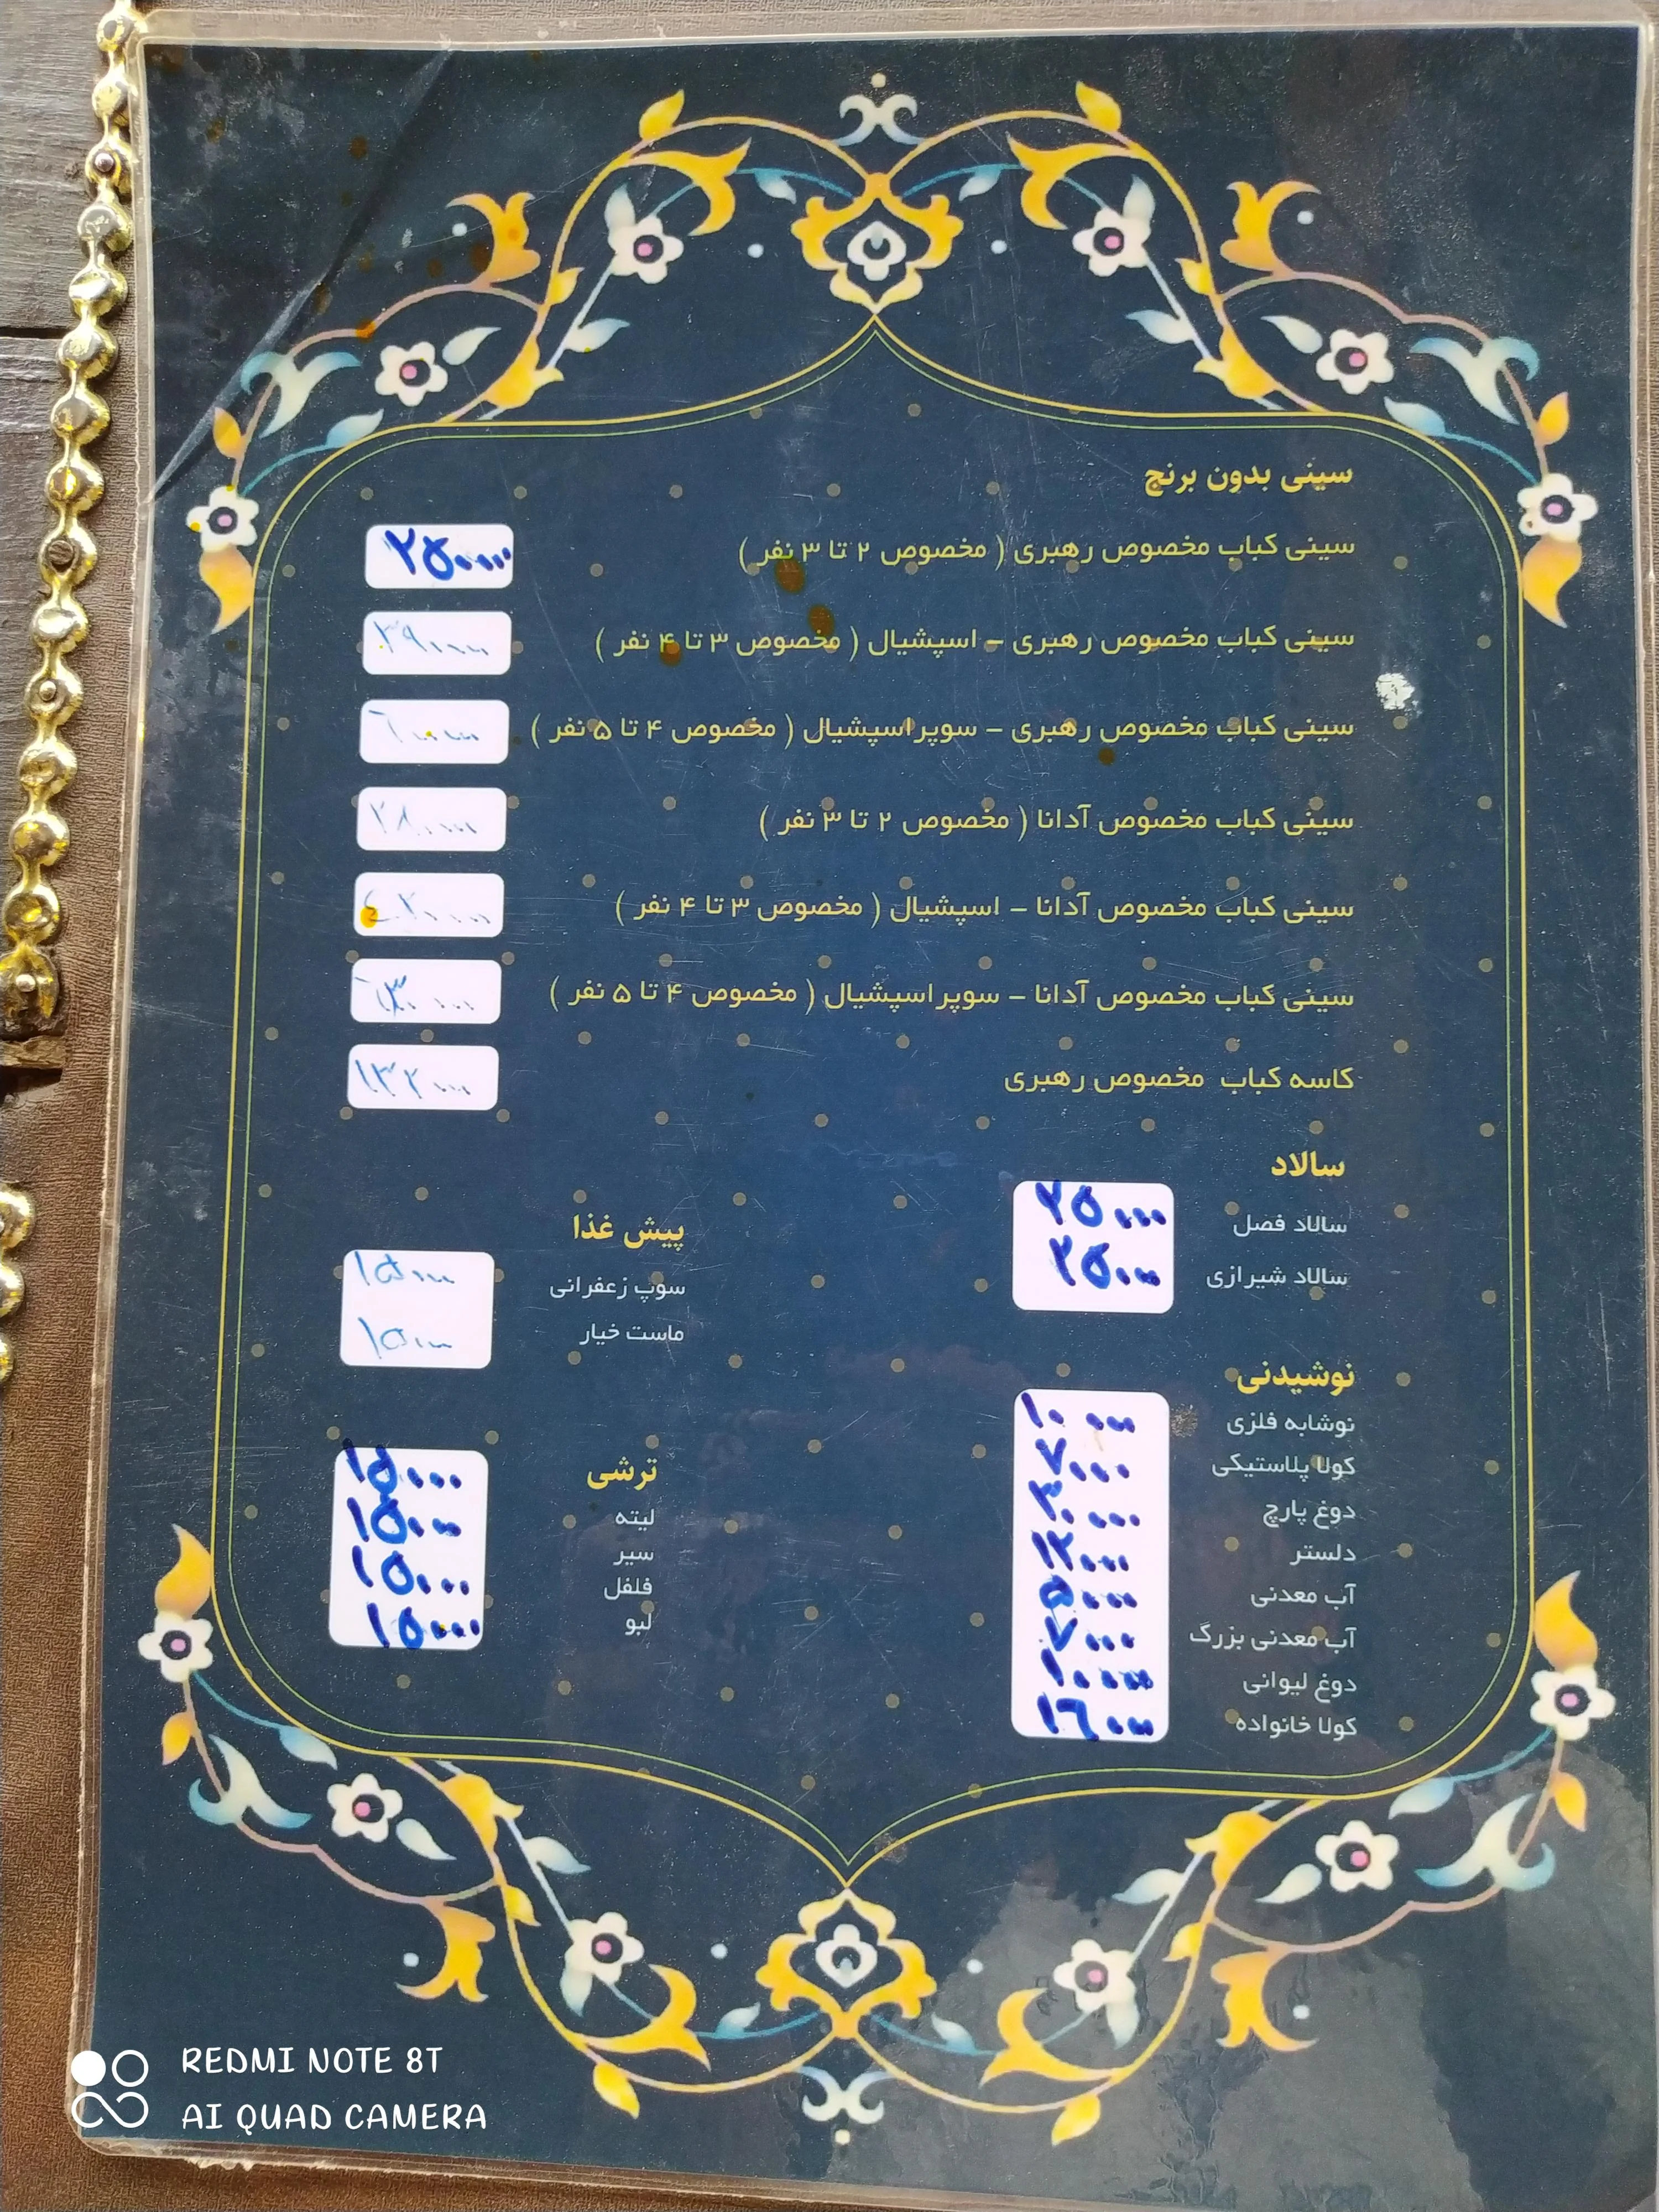 سینی بدون برنج
سینی کباب مخصوص رهبری ( مخصوص ۲ تا ۳ نفر ) ۲۵۰۰۰۰
سینی کباب مخصوص رهبری – اسپشیال ( مخصوص ۳ تا ۴ نفر ) ۳۹۰۰۰۰
سینی کباب مخصوص رهبری – سوپر اسپشیال ( مخصوص ۴ تا ۵ نفر )
سینی کباب مخصوص آدانا ( مخصوص ۲ تا ۳ نفر ) ۲۸۰۰۰۰
سینی کباب مخصوص آدانا – اسپشیال ( مخصوص ۳ تا ۴ نفر )
سینی کباب مخصوص آدانا – سوپر اسپشیال ( مخصوص ۴ تا ۵ نفر )
کاسه کباب مخصوص رهبری
سالاد
سالاد فصل ۲۵۰۰۰
سالاد شیرازی ۲۵۰۰۰
پیش غذا
سوپ زعفرانی ۱۵۰۰۰
ماست خیار ۱۵۰۰۰
نوشیدنی
نوشابه فلزی ۱۰۰۰۰
کولا پلاستیکی ۷۰۰۰
دوغ پارچ
دلستر ۱۲۰۰۰
آب معدنی ۵۰۰۰
آب معدنی بزرگ ۷۰۰۰
دوغ لیوانی
کولا خانواده ۱۶۰۰۰
ترشی
لیته ۱۵۰۰۰
سیر ۱۵۰۰۰
فلفل ۱۵۰۰۰
لبو ۱۵۰۰۰
REDMI NOTE 8T
AI QUAD CAMERA